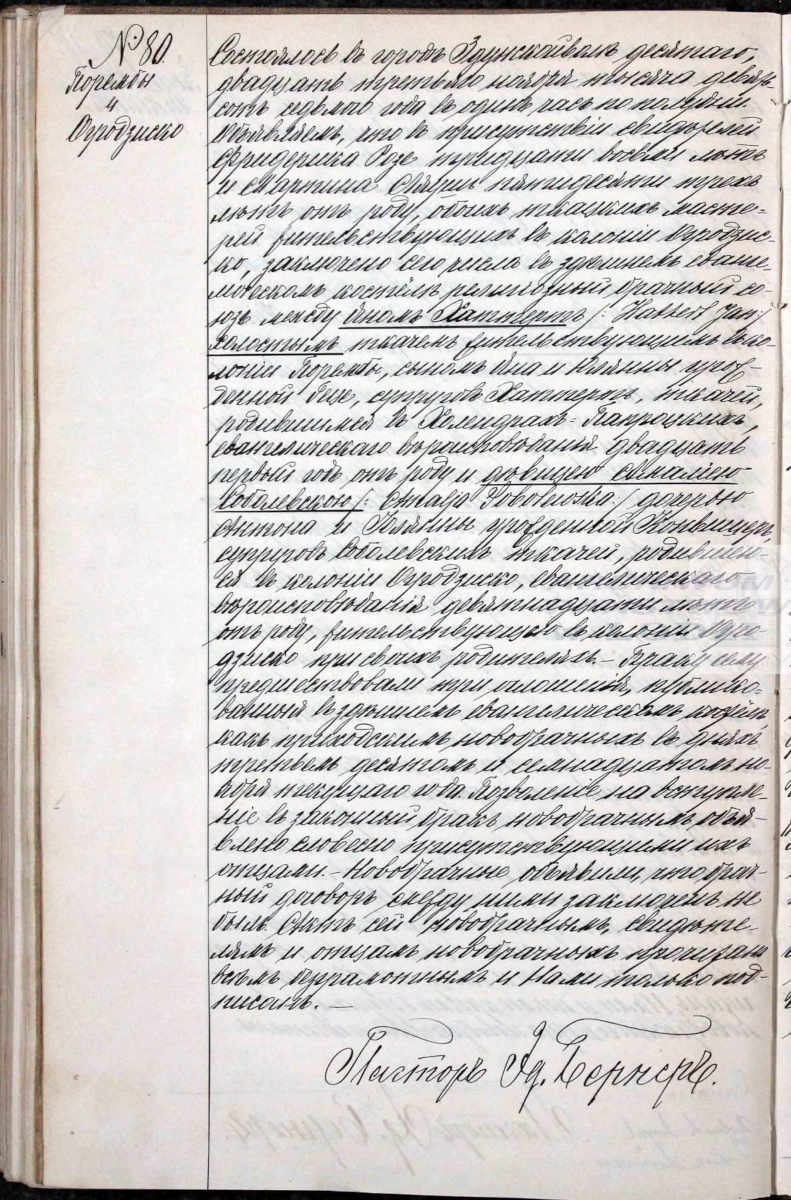 № 80.
Порембы
и
Огродзиско
Состоялось въ городѣ Здунскойволѣ десятаго,
двадцать третьяго ноября тысяча девять-
сотъ седьмого года въ одинъ часъ по полудни.
Объявляемъ, что въ присутствіи свидѣтелей
Фридерика Розе тридцати восьми лѣтъ
и Мартина пятидесяти трехъ
лѣтъ отъ роду, обоихъ ткацкихъ масте-
рей жительствующихъ въ колоніи Огродзис-
ко, заключено сего числа въ здѣшнемъ еванге-
лическомъ костёлѣ религіозный брачный со-
юзъ между Яномъ Хаттертъ /: Jan:/
холостымъ ткачемъ жительствующимъ въ ко-
лоніи Порембы, сыномъ Яна и урож-
денной супруговъ Хаттертъ, ткачей,
родившимся въ Холендрахъ-Папроцкихъ,
евангелическаго вѣроисповѣданія двадцать
первый годъ отъ роду и дѣвицею Амаліею
Соболевскою /: :/ дочерью
Антона и урожденной
супруговъ Соболевскихъ ткачей, родившею-
ся въ колоніи Огродзиско, евангелическаго
вѣроисповѣданія девятнадцати лѣтъ
отъ роду, жительствующею въ колоніи Огро-
дзиско при своихъ родителяхъ. – Браку сему
предшествовали три оглашенія, публико-
ванныя въ здѣшнемъ евангелическомъ костёлѣ,
какъ приходскимъ новобрачныхъ въ дняхъ
третьемъ десятомъ и семнадцатомъ но-
ября текущаго года. Позволеніе на вступле-
ніе въ законный бракъ новобрачнымъ объя-
влено словесно присутствующими ихъ
отцами. – Новобрачные объявили, что брач-
ный договоръ между ними заключенъ не
былъ. Актъ сей новобрачнымъ, свидѣте-
лямъ и отцамъ новобрачныхъ прочитанъ
всѣмъ безграмотнымъ и Нами только под-
писанъ. –
Пасторъ Эд. Бернеръ.